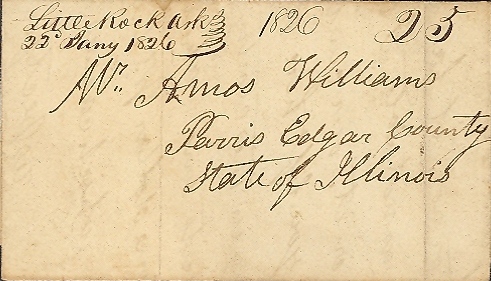 Little Rock Ark 1826 25
22d Jany 1826
Mr. Amos Williams
Parris Edgar County
State of Illinois